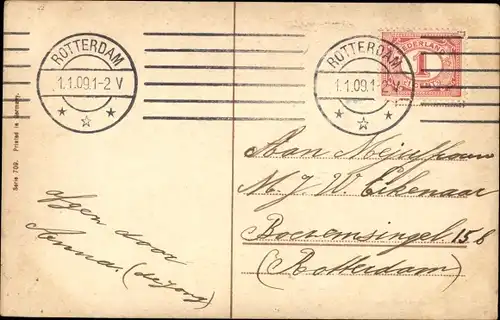 ROTTERDAM
1.1.09.1-2 V
ROTTERDAM
1.1.09.1-2 V
NEDERLAND
1
Serie 709. Printed in Germany.
Aan Mejuffrouw
M. J. W. Eikenaar
Boezemsingel 156
(Rotterdam)
afgen door
Anna. (de Jong)